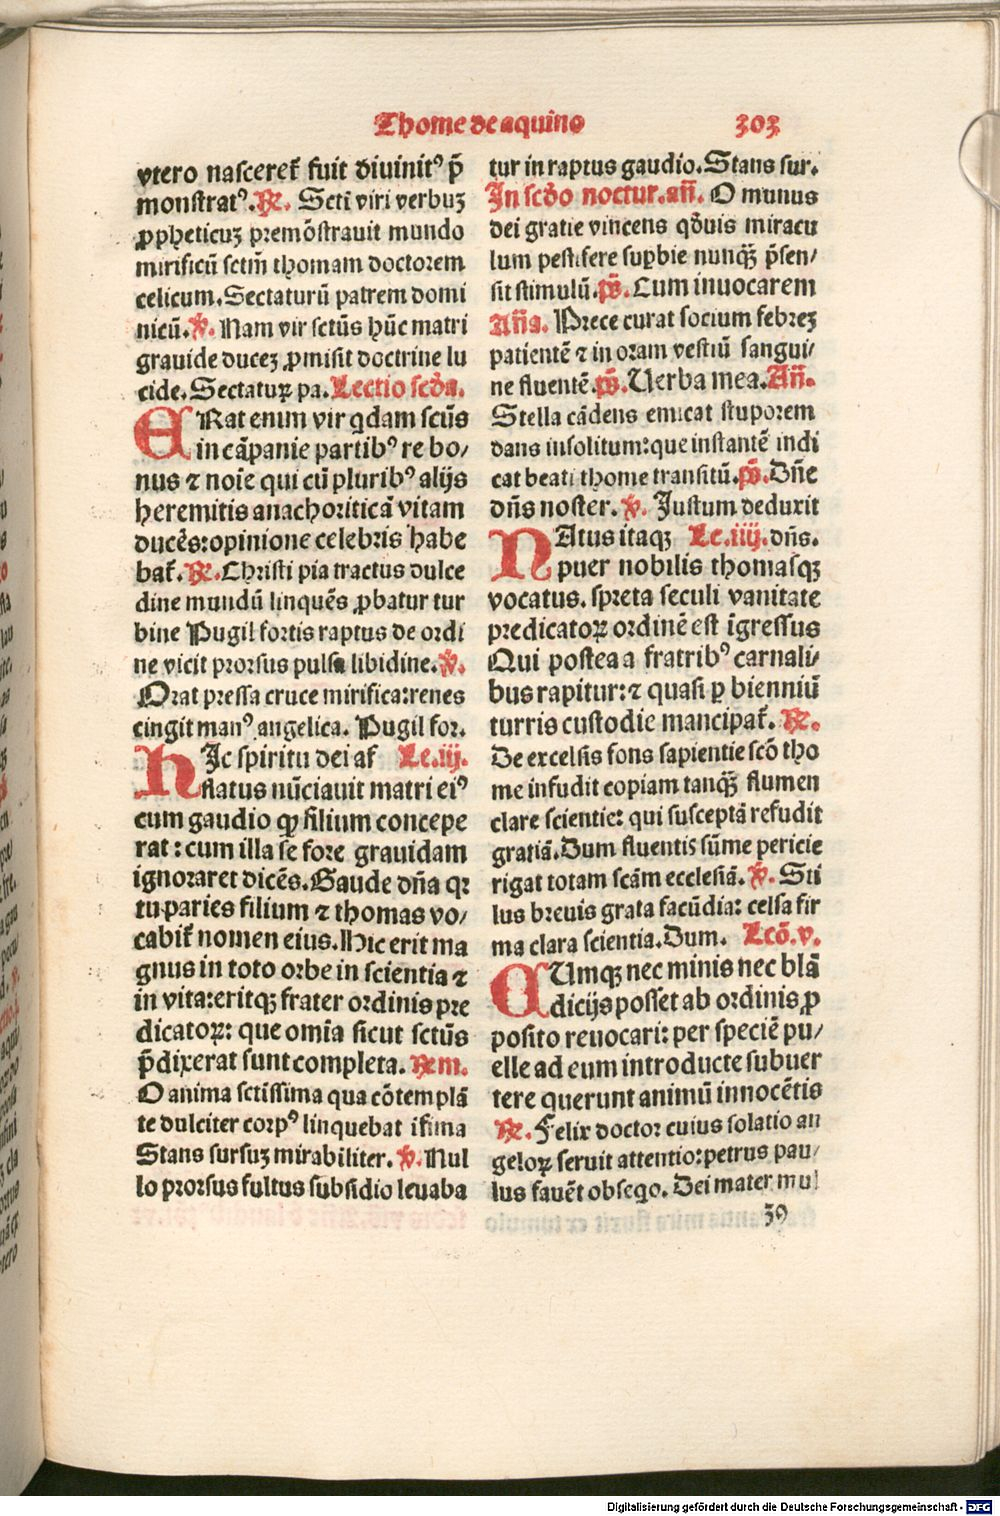 Thome de aquino 303
vtero nasceret᷑ fuit diuinitꝰ p̄
monstratꝰ. ℞. Scti viri verbuꝫ
ꝓpheticuꝫ premōstrauit mundo
mirificū sctm̄ thomam doctorem
celicum. Sectaturū patrem domi
nicū. ℣. Nam vir sctūs hūc matri
grauide duceꝫ ꝓmisit doctrine lu
cide. Sectaturꝝ pa. Lectio scđa.
ERat enim vir qdam scūs
in cāpanie partibꝰ re bo/
nus ⁊ noīe qui cū pluribꝰ alijs
heremitis anachoriticā vitam
ducēs: opinione celebris habe
bat᷑. ℞. Christi pia tractus dulce
dine mundū linquēs ꝓbatur tur
bine Pugil fortis raptus de ordi
ne vicit prorsus pulsa libidine. ℣.
Orat pressa cruce mirifica: renes
cingit manꝰ angelica. Pugil for.
HIc spiritu dei af Le. iij.
flatus nūciauit matri eiꝰ
cum gaudio ꝙ filium concepe
rat: cum illa se fore grauidam
ignoraret dicēs. Gaude dn̄a qꝛ
tu paries filium ⁊ thomas vo/
cabit᷑ nomen eius. Hic erit ma
gnus in toto orbe in scientia ⁊
in vita: eritqꝫ frater ordinis pre
dicatoꝝ: que omīa sicut sctūs
p̄dixerat sunt completa. Rm.
O anima sctissima qua cōtemplā
te dulciter corpꝰ linquebat infima
Stans sursuꝫ mirabiliter. ℣. Nul
lo prorsus fultus subsidio leuaba
tur in raptus gaudio. Stans sur.
In scđo noctur. an̄. O munus
dei gratie vincens qđuis miracu
lum pestifere suꝑbie nunqꝫ̄ p̄sen/
sit stimulū. p̄s. Cum inuocarem
An̄a. Prece curat socium febreꝫ
patientē ⁊ in oram vestiū sangui/
ne fluentē. p̄s. Uerba mea. An̄.
Stella cādens emicat stuporem
dans insolitum: que instantē indi
cat beati thome transitū. p̄s. Dn̄e
dn̄s noster. ℣. Justum deduxit
NAtus itaqꝫ Le. iiij. dn̄s.
puer nobilis thomasqꝫ
vocatus. spreta seculi vanitate
predicatoꝝ ordinē est īgressus
Qui postea a fratribꝰ carnali/
bus rapitur: ⁊ quasi ꝑ bienniū
turris custodie mancipat᷑. ℞.
De excelsis fons sapientie scō tho
me infudit copiam tanqꝫ̄ flumen
clare scientie: qui susceptā refudit
gratiā. Dum fluentis sūme pericie
rigat totam scām ecclesiā. ℣. Sti
lus breuis grata facūdia: celsa fir
ma clara scientia. Dum. Lcō. v.
CUmqꝫ nec minis nec blā
dicijs posset ab ordinis ꝓ
posito reuocari: per speciē pu/
elle ad eum introducte subuer
tere querunt animū innocētis
℞. Felix doctor cuius solatio an
geloꝝ seruit attentio: petrus pau/
lus fauēt obseqo. Dei mater mul
39
Digitalisierung gefördert durch die Deutsche Forschungsgemeinschaft - DFG